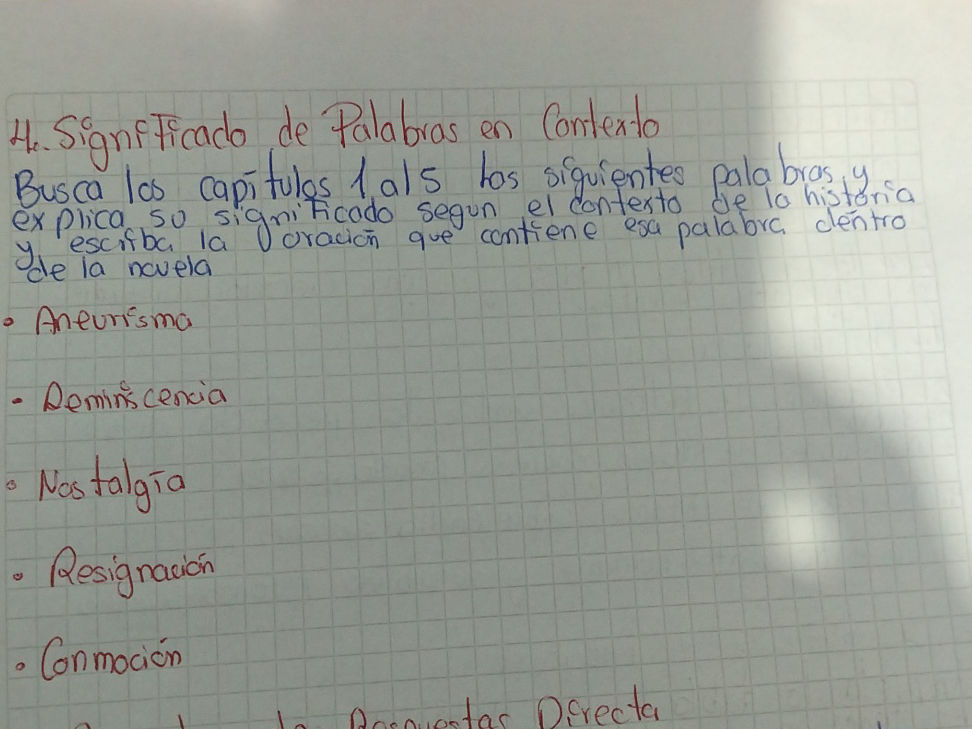 4. Significado de Palabras en Contexto
Busca los capítulos 1 al 5 las siguientes palabras y
explica so significado segun el contexto de la historia
y escriba la oración que contiene esa palabra dentro
de la novela
• Aneurisma
• Reminiscencia
• Nostalgia
• Resignación
• Conmoción
Respuestas Directa